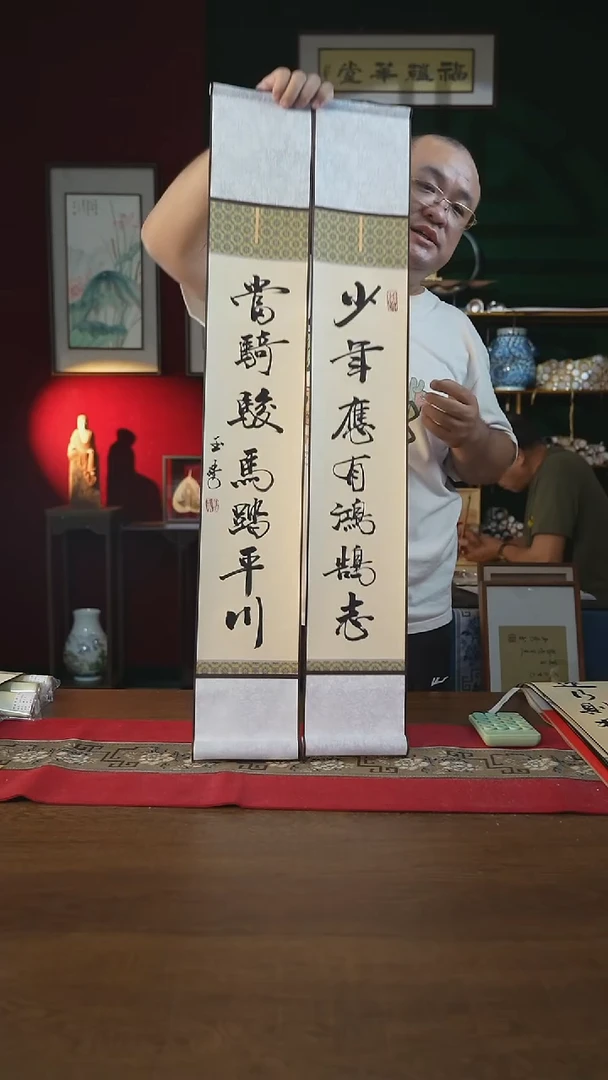 福蘊華堂
少年應有鴻鵠志
當騎駿馬踏平川